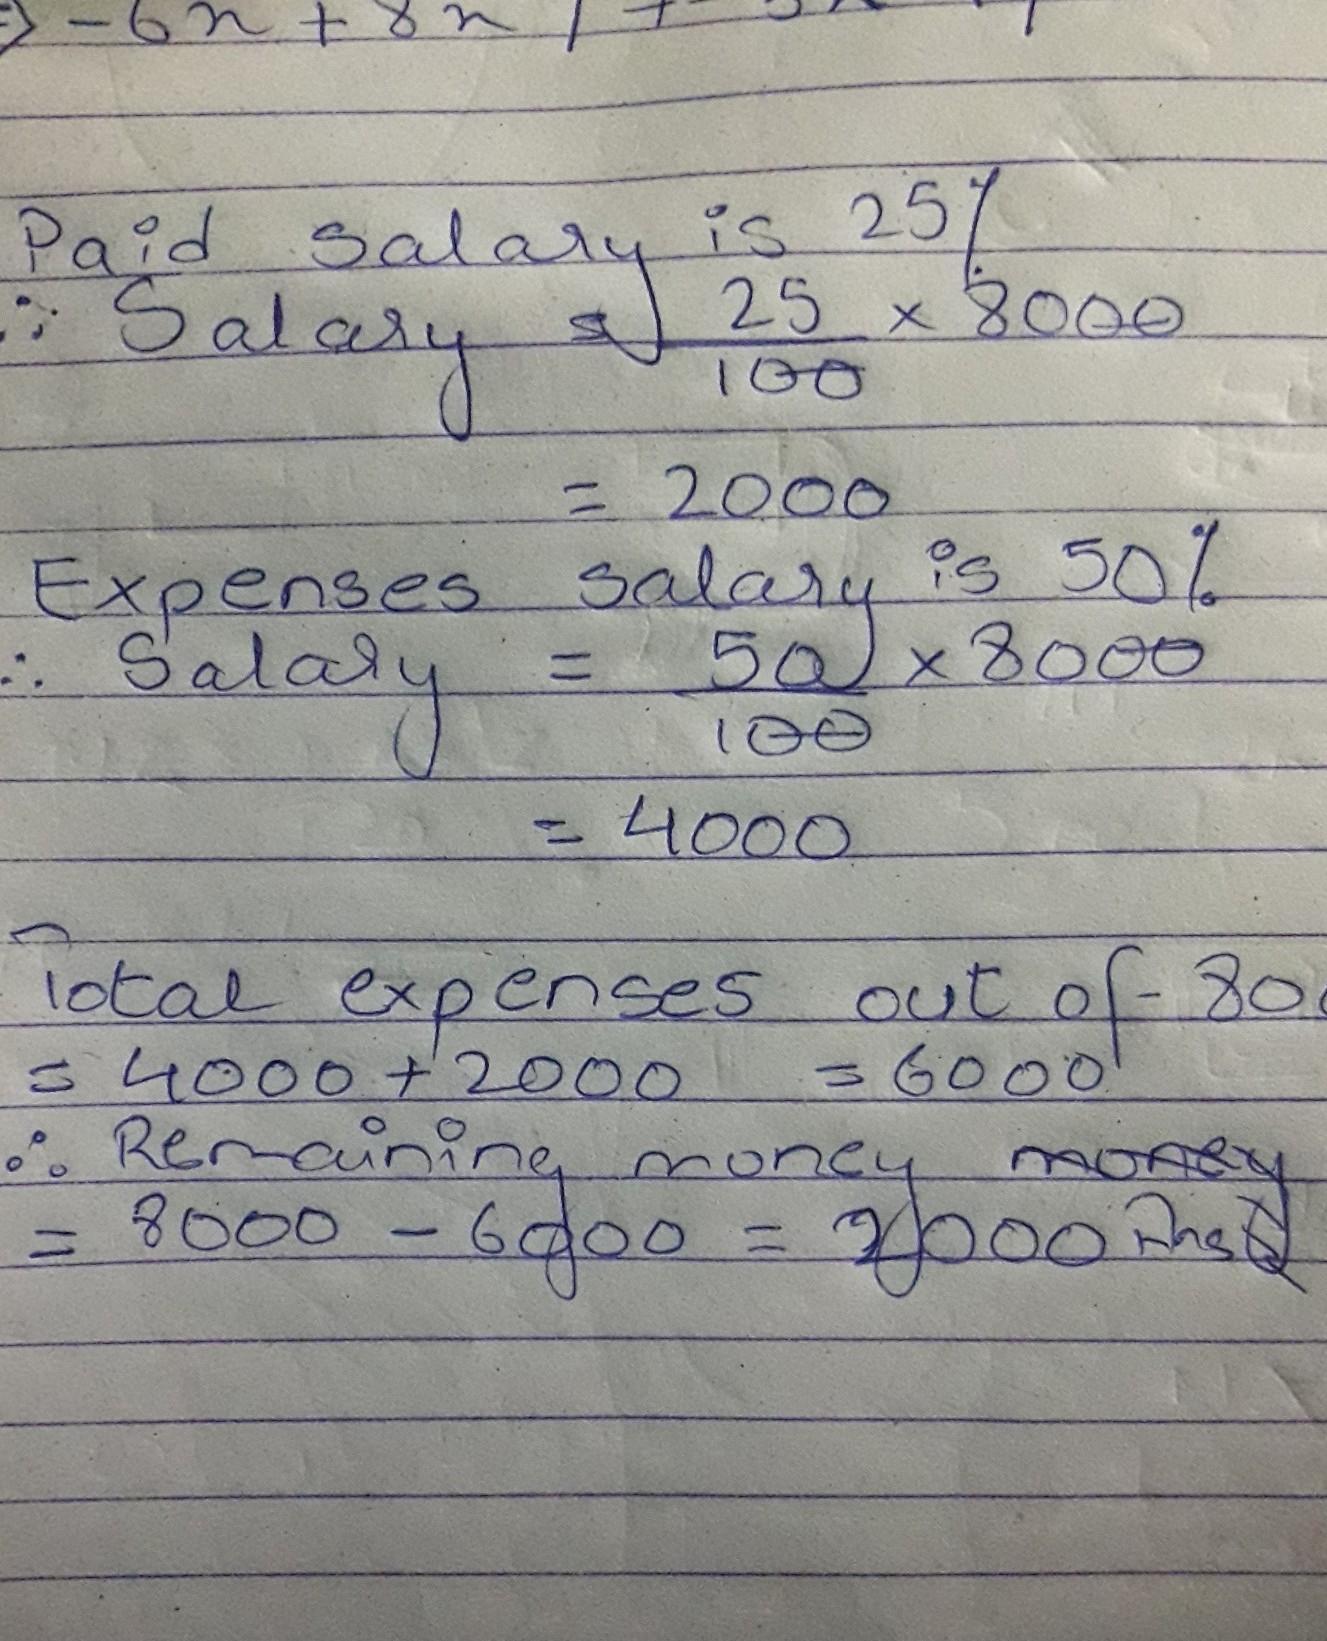 -6x + 8x
Paid salary is 25%
∴ Salary = 25/100 × 8000
= 2000
Expenses salary is 50%
∴ Salary = 50/100 × 8000
= 4000
Total expenses out of 80
= 4000 + 2000 = 6000
∴ Remaining money money
= 8000 - 6000 = 2000